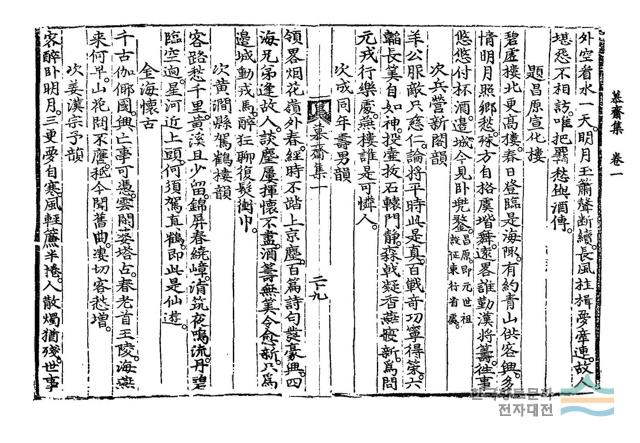 慕齋集 卷一
外空看水一天明月玉簫聲斷續長風拄楫夢牽連故人
堪恐不相訪唯把覉愁與酒傳
題昌原宣化樓
碧虛樓北更高樓春日登臨是海陬有約青山供客興多
情明月照鄕愁綵方自格虞階舞遠畧誰勤漢將籌往事
悠悠付杯酒邊城今見臥兜鍪 昌原卽元世祖設征東行省處
次兵營新閣韻
羊公服敵只慈仁論將平時此是眞百戰奇功寧得策六
韜長筭自如神投壺放石轅門靜森戟凝香燕寢新爲問
元戎行樂處燕樓誰是可憐人
次成同年壽男韻
慕齋集一 二十九
領畧烟花嶺外春經時不踏上京塵百篇詩句發豪興四
海兄弟逢故人談麈屢揮懷不盡酒籌無筭令愈新只爲
邊城動戎馬醉狂聊復髮衝巾
次黃澗縣駕鶴樓韻
客路愁千里黃溪且少留錦屛春繞嶂清筑夜鳴流丹碧
臨空逈星河近上頭何須駕眞鶴卽此是仙遊
金海懷古
千古伽倻國興亡事可憑雲閑婆塔古春老首王陵海燕
來何早山花問不應祗今聞舊曲凄切客愁增
次姜漢宗子韻
客醉臥明月三更夢自寒風輕簾半捲人散燭猶殘世事
한국향토문화
전자대전